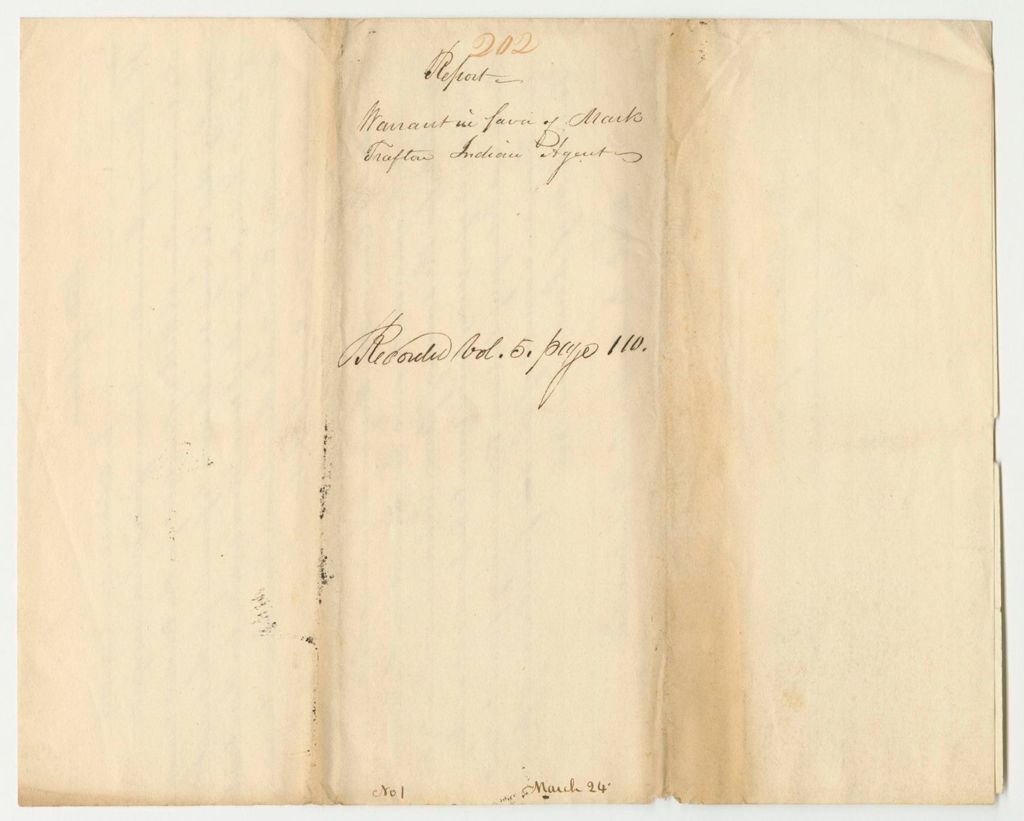 202
Report
Warrant in favor of Mark
Trafton Indian Agent
Recorded Vol. 5. page 110.
No 1 March 24